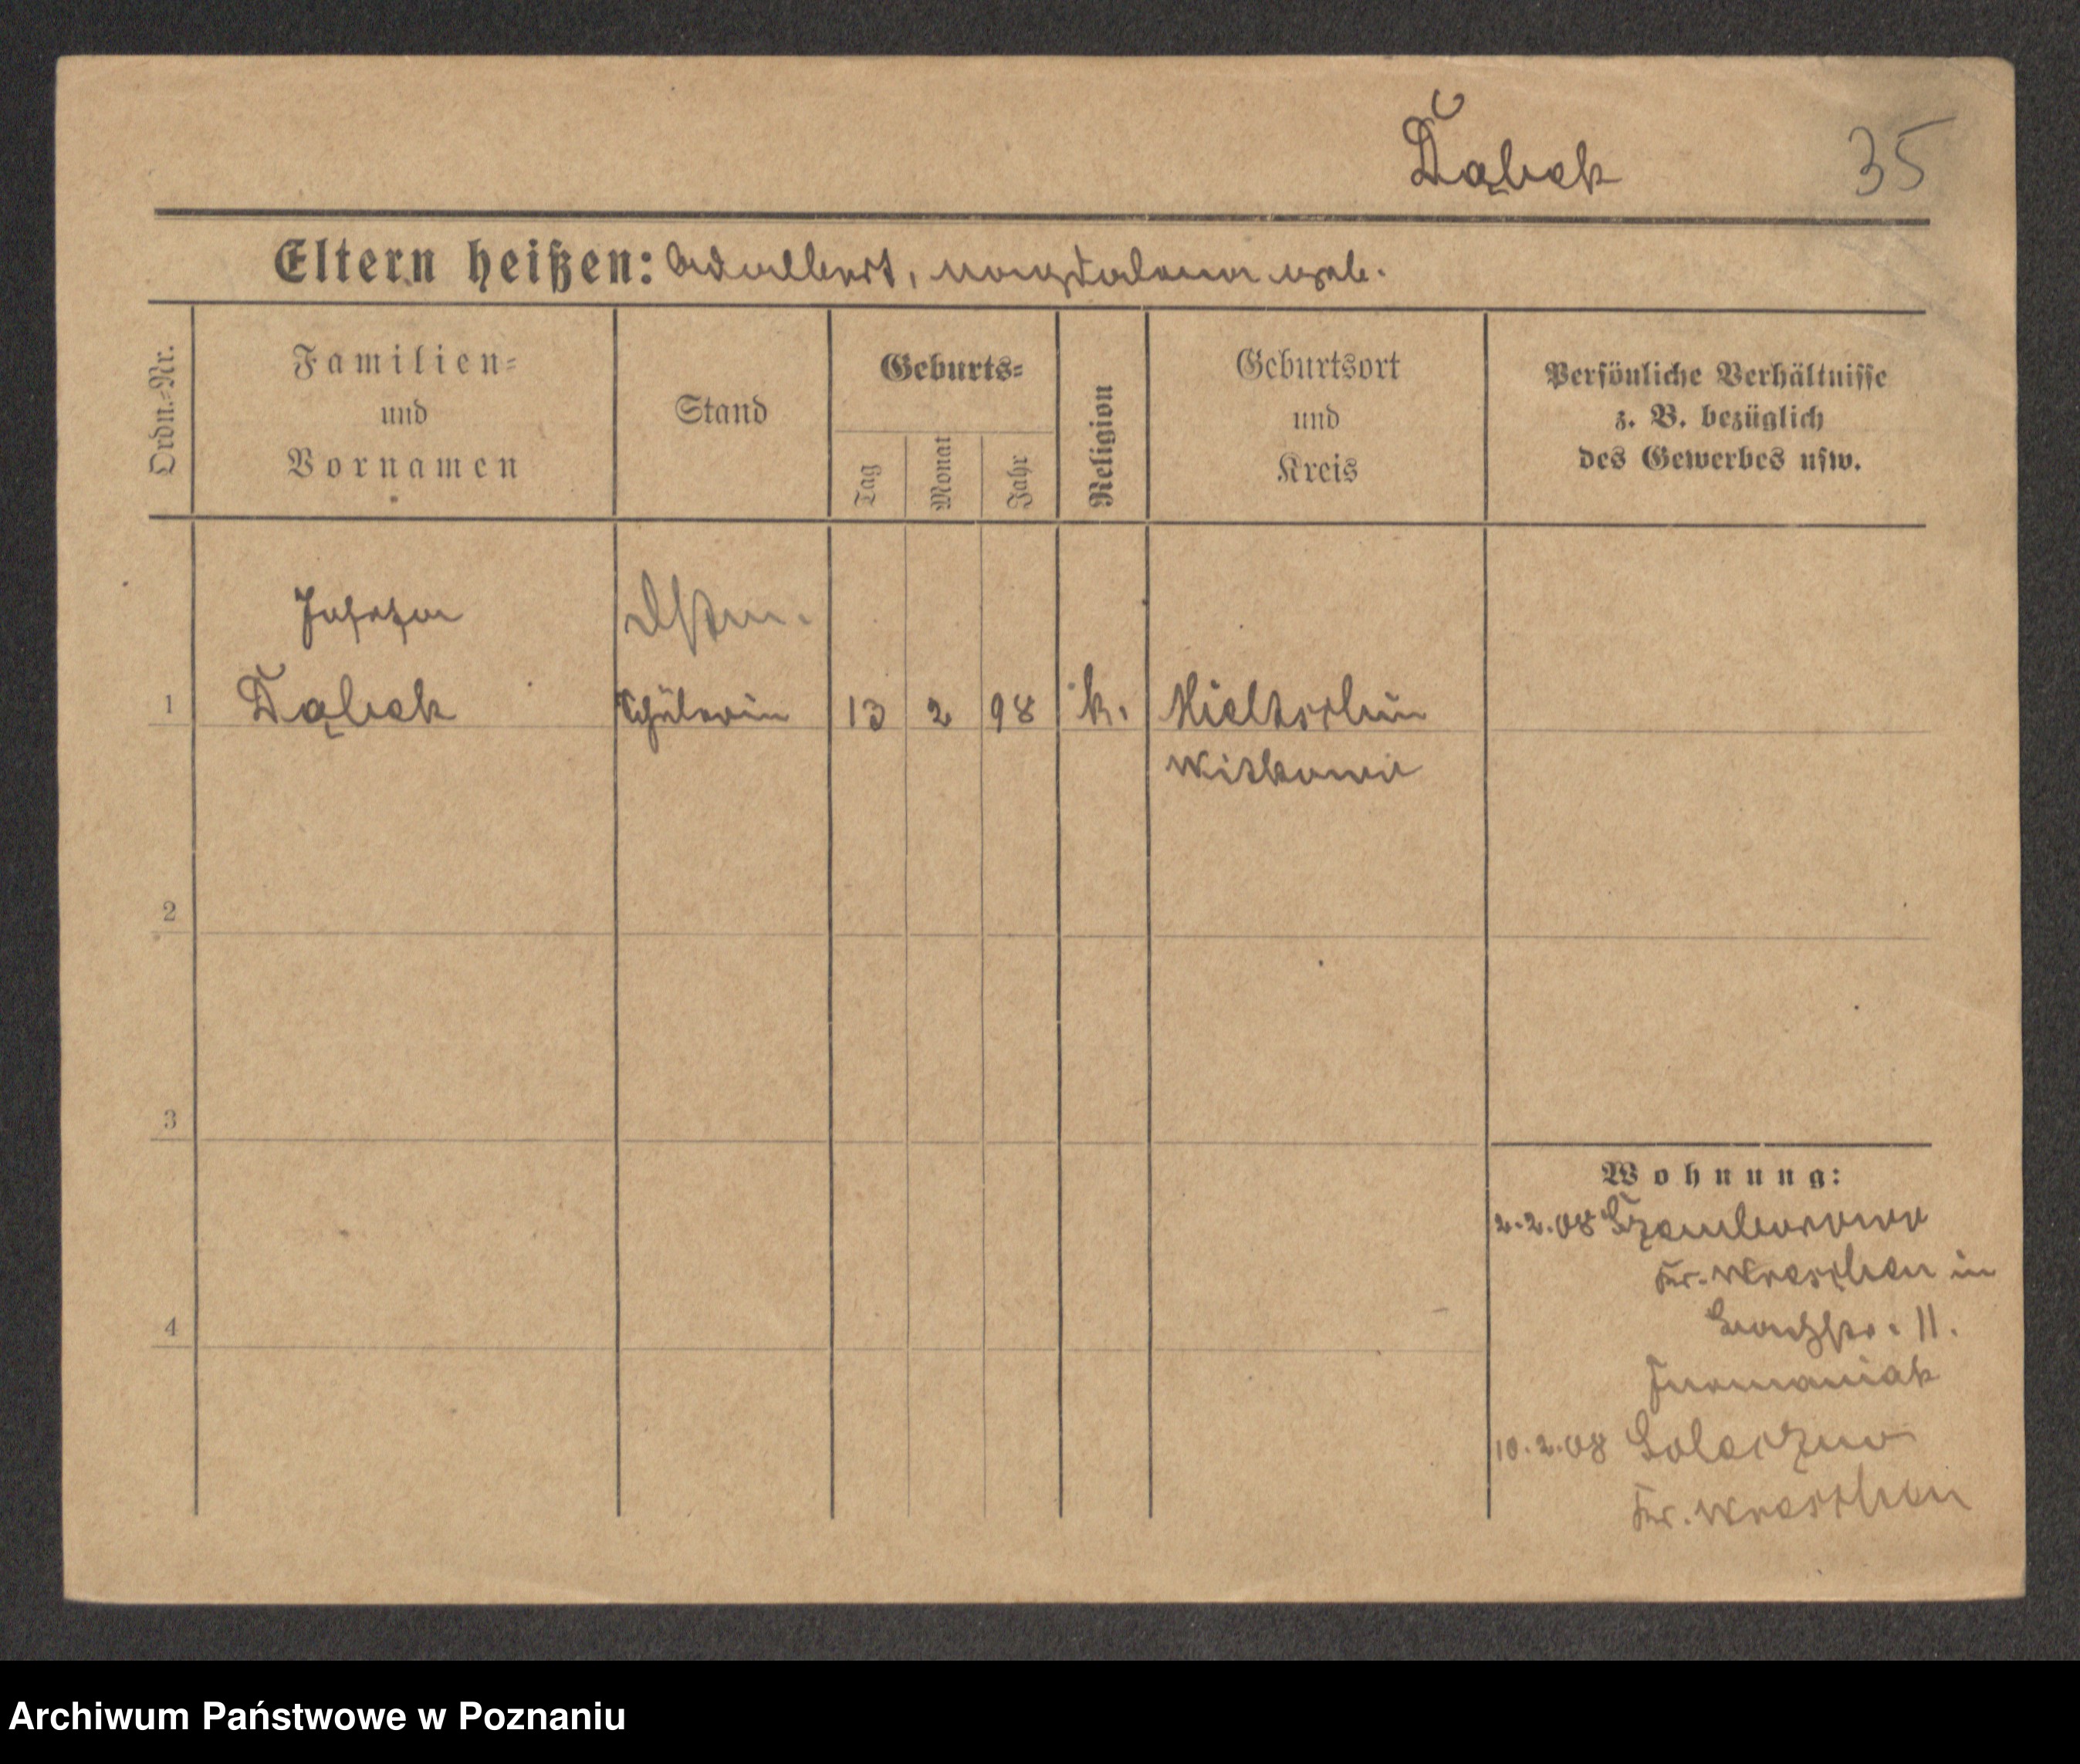 Dąbek 35
Eltern heißen: Adalbert, Magdalena geb.
Ordn.-Nr.
Familien-
und
Vornamen
Stand
Geburts-
Tag
Monat
Jahr
Religion
Geburtsort
und
Kreis
Persönliche Verhältnisse
z. B. bezüglich
des Gewerbes usw.
Josefa
1 Dąbek Schülerin 13 2 98 k. Mielzschin
Witkowo
2
3
4
Wohnung:
2.2.08
Kr. Wreschen in
11.
Furmaniak
10.2.08
Kr. Wreschen
Archiwum Państwowe w Poznaniu